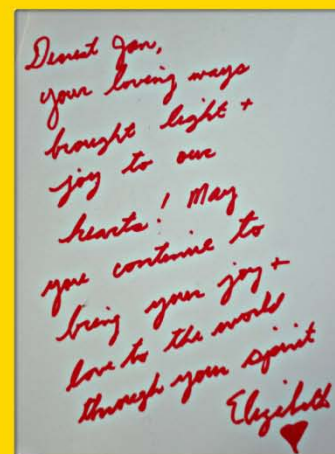 Dearest Jan,
your loving ways
brought light +
joy to our
hearts! May
you continue to
bring your joy +
love to the world
through your spirit
Elizabeth